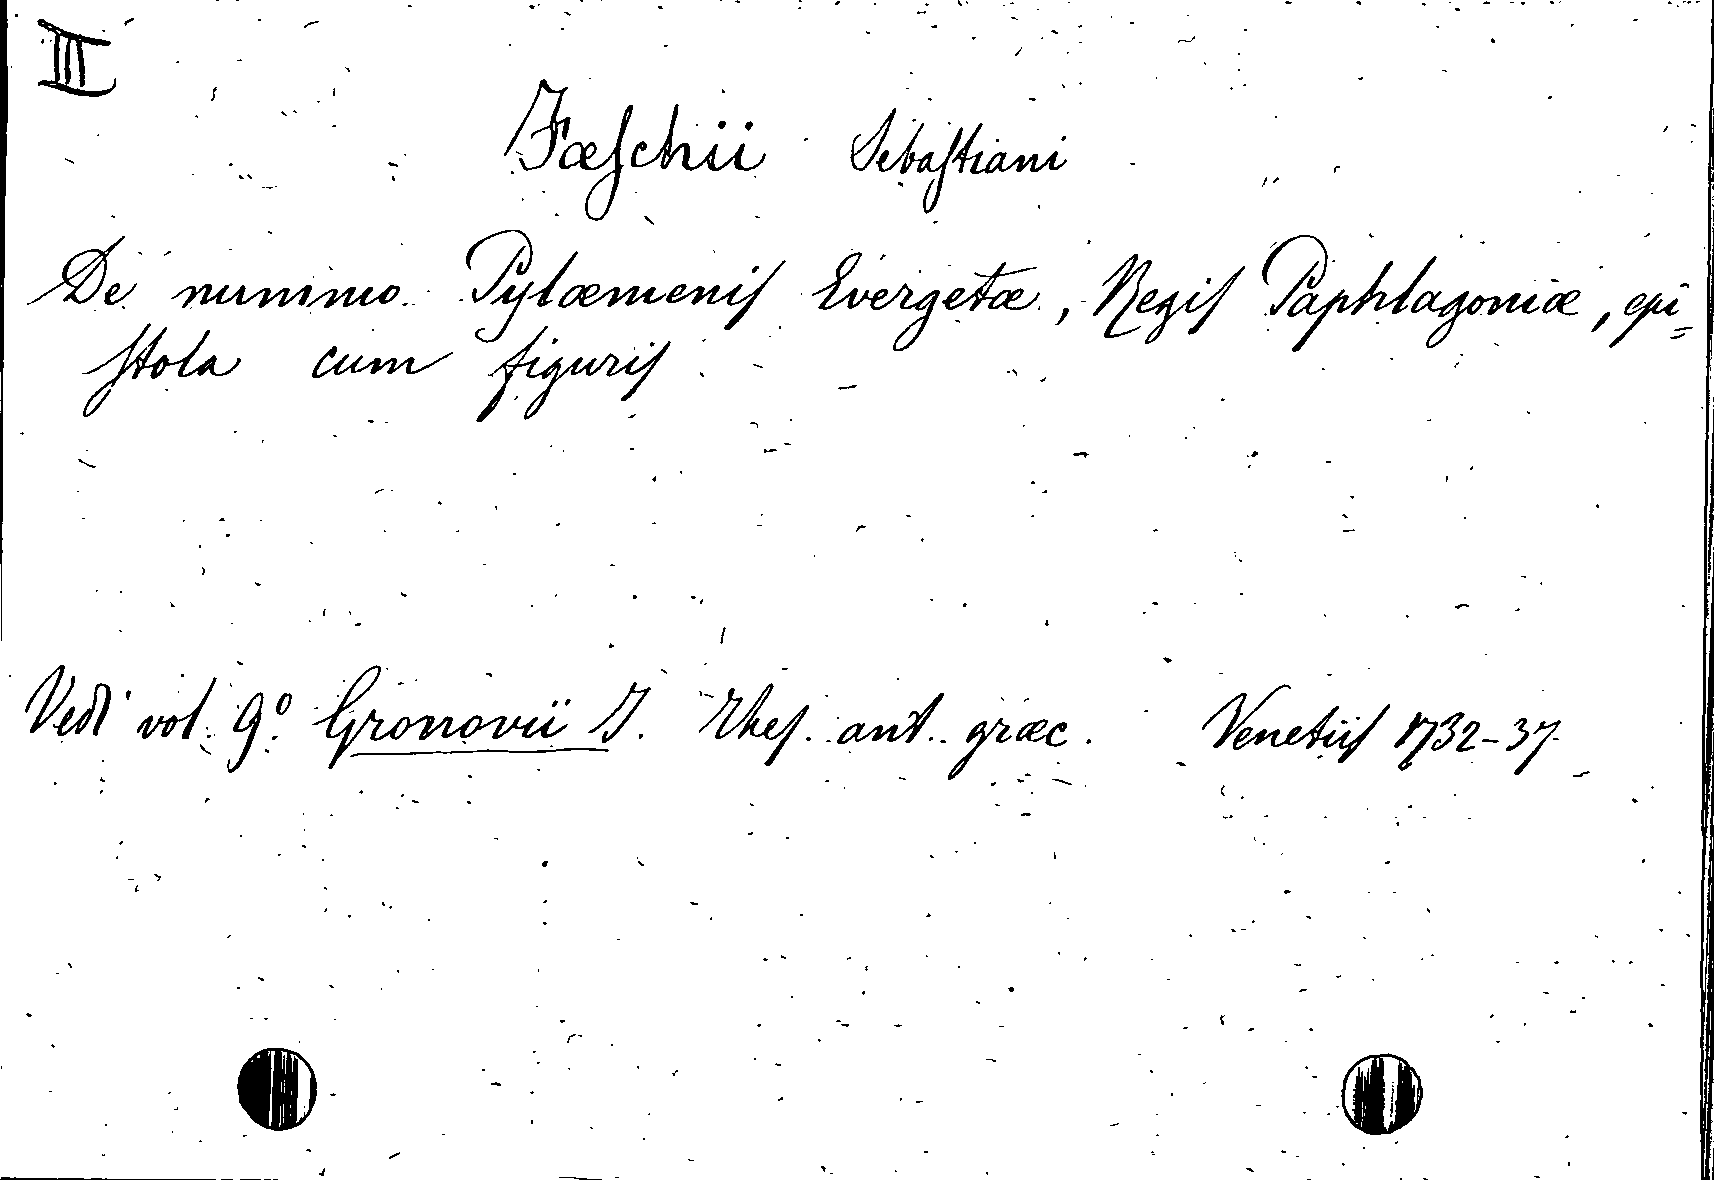 III
Fæschii Sebastiani
De nummo Pylæmenis Evergetæ, Regis Paphlagoniæ, epi=
stola cum figuris
Vedi vol. 9º. Gronovii J. Thes. ant. græc. Venetiis 1732-37